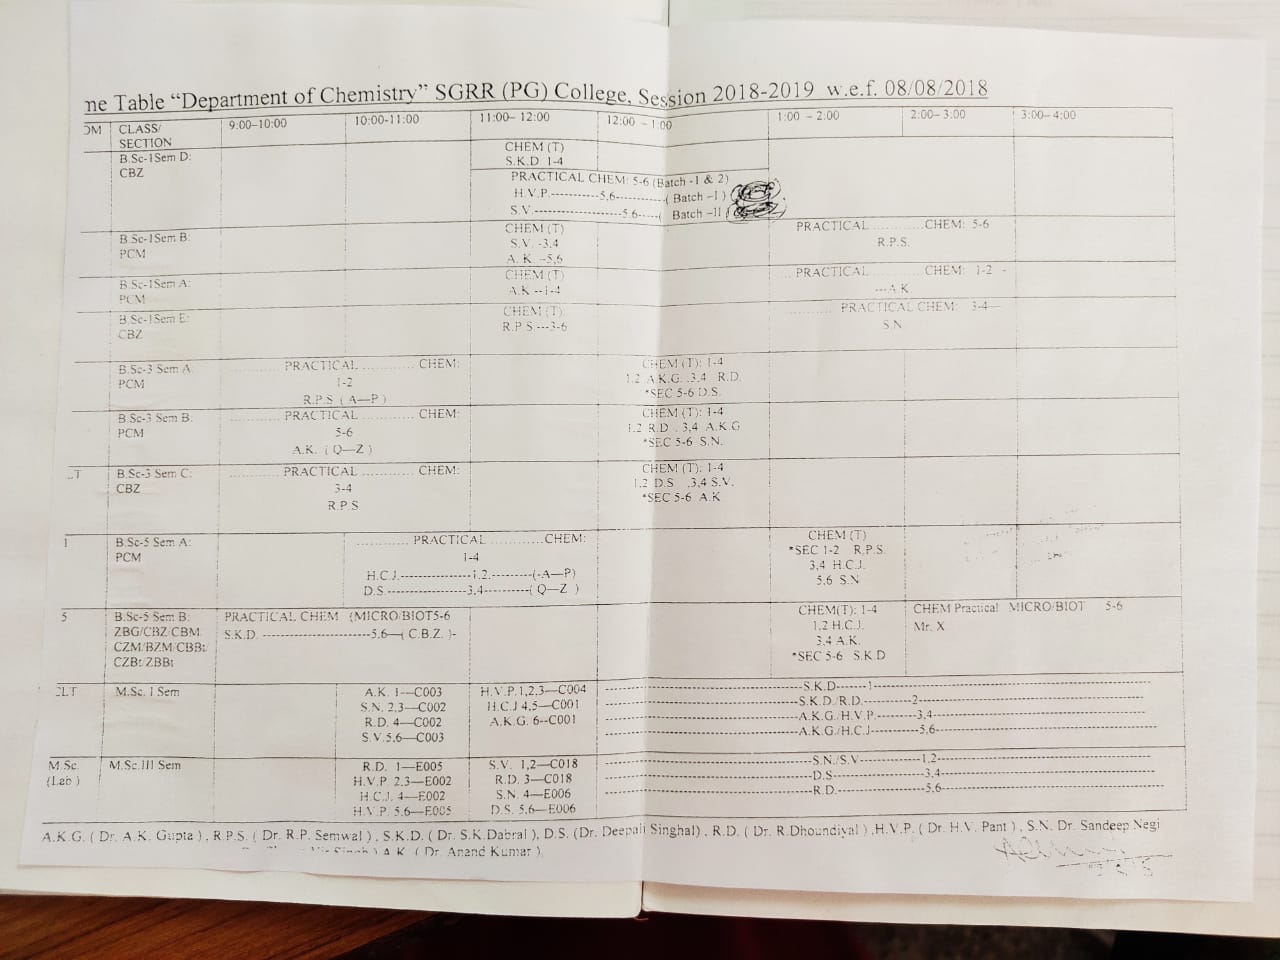 ne Table “Department of Chemistry” SGRR (PG) College, Session 2018-2019 w.e.f. 08/08/2018
OM CLASS/ SECTION 9:00-10:00 10:00-11:00 11:00– 12:00 12:00 – 1:00 1:00 – 2:00 2:00– 3:00 3:00– 4:00
B.Sc-1Sem D: CBZ
CHEM (T)
S.K.D 1-4
PRACTICAL CHEM: 5-6 (Batch -1 & 2)
H.V.P.-----------5,6---------( Batch –I )
S.V.---------------------5.6-----( Batch –II
B.Sc-1Sem B: PCM
CHEM (T)
S.V. -3,4
A. K. –5,6
PRACTICAL ............CHEM: 5-6
R.P.S.
B.Sc-1Sem A: PCM
CHEM (T)
A.K --1-4
PRACTICAL ............ CHEM: 1-2 -
---A.K.
B.Sc-1Sem E: CBZ
CHEM (T):
R.P.S.---3-6
............ PRACTICAL CHEM: 3-4
S.N.
B.Sc-3 Sem A: PCM
PRACTICAL ............... CHEM:
1-2
R.P.S ( A—P )
CHEM (T): 1-4
1.2 A.K.G. .3,4 R.D.
*SEC 5-6 D.S.
B.Sc-3 Sem B: PCM
PRACTICAL ............... CHEM:
5-6
A.K. ( Q—Z )
CHEM (T): 1-4
1.2 R.D . 3,4 A.K.G
*SEC 5-6 S.N.
LT B.Sc-3 Sem C: CBZ
PRACTICAL ............... CHEM:
3-4
R.P.S
CHEM (T): 1-4
1.2 D.S .3,4 S.V.
*SEC 5-6 A.K
1 B.Sc-5 Sem A: PCM
............ PRACTICAL ............CHEM:
1-4
H.C.J.----------------1,2.---------(-A—P)
D.S.------------------3,4----------( Q—Z )
CHEM (T)
*SEC 1-2 R.P.S.
3,4 H.C.J.
5.6 S.N
5 B.Sc-5 Sem B:
ZBG/CBZ/CBM
CZM/BZM/CBBt
CZBt/ZBBt
PRACTICAL CHEM (MICRO/BIOT5-6
S.K.D. ------------------------5,6—( C.B.Z. )-
CHEM(T): 1-4
1.2 H.C.J.
3.4 A.K.
*SEC 5-6 S.K.D
CHEM Practical MICRO/BIOT 5-6
Mr. X
CLT M.Sc. I Sem
A.K. 1—C003
S.N. 2,3—C002
R.D. 4—C002
S.V.5.6—C003
H.V.P.1,2,3—C004
H.C.J 4,5—C001
A.K.G. 6--C001
S.K.D------1
S.K.D./R.D.---------2
A.K.G./H.V.P.--------3,4
A.K.G./H.C.J---------5,6
M.Sc. (Lab ) M.Sc.III Sem
R.D. 1—E005
H.V.P. 2.3—E002
H.C.J. 4—E002
H.V.P. 5.6—E005
S.V. 1,2—C018
R.D. 3—C018
S.N. 4—E006
D.S. 5,6—E006
S.N./S.V------------1,2
D.S------------------3,4
R.D.-----------------5,6
A.K.G. ( Dr. A.K. Gupta ) , R.P.S. ( Dr. R.P. Semwal ) , S.K.D. ( Dr. S.K.Dabral ), D.S. (Dr. Deepali Singhal) , R.D. ( Dr. R.Dhoundiyal ) ,H.V.P. ( Dr. H.V. Pant ) , S.N. Dr. Sandeep Negi
A.K. ( Dr. Anand Kumar ).